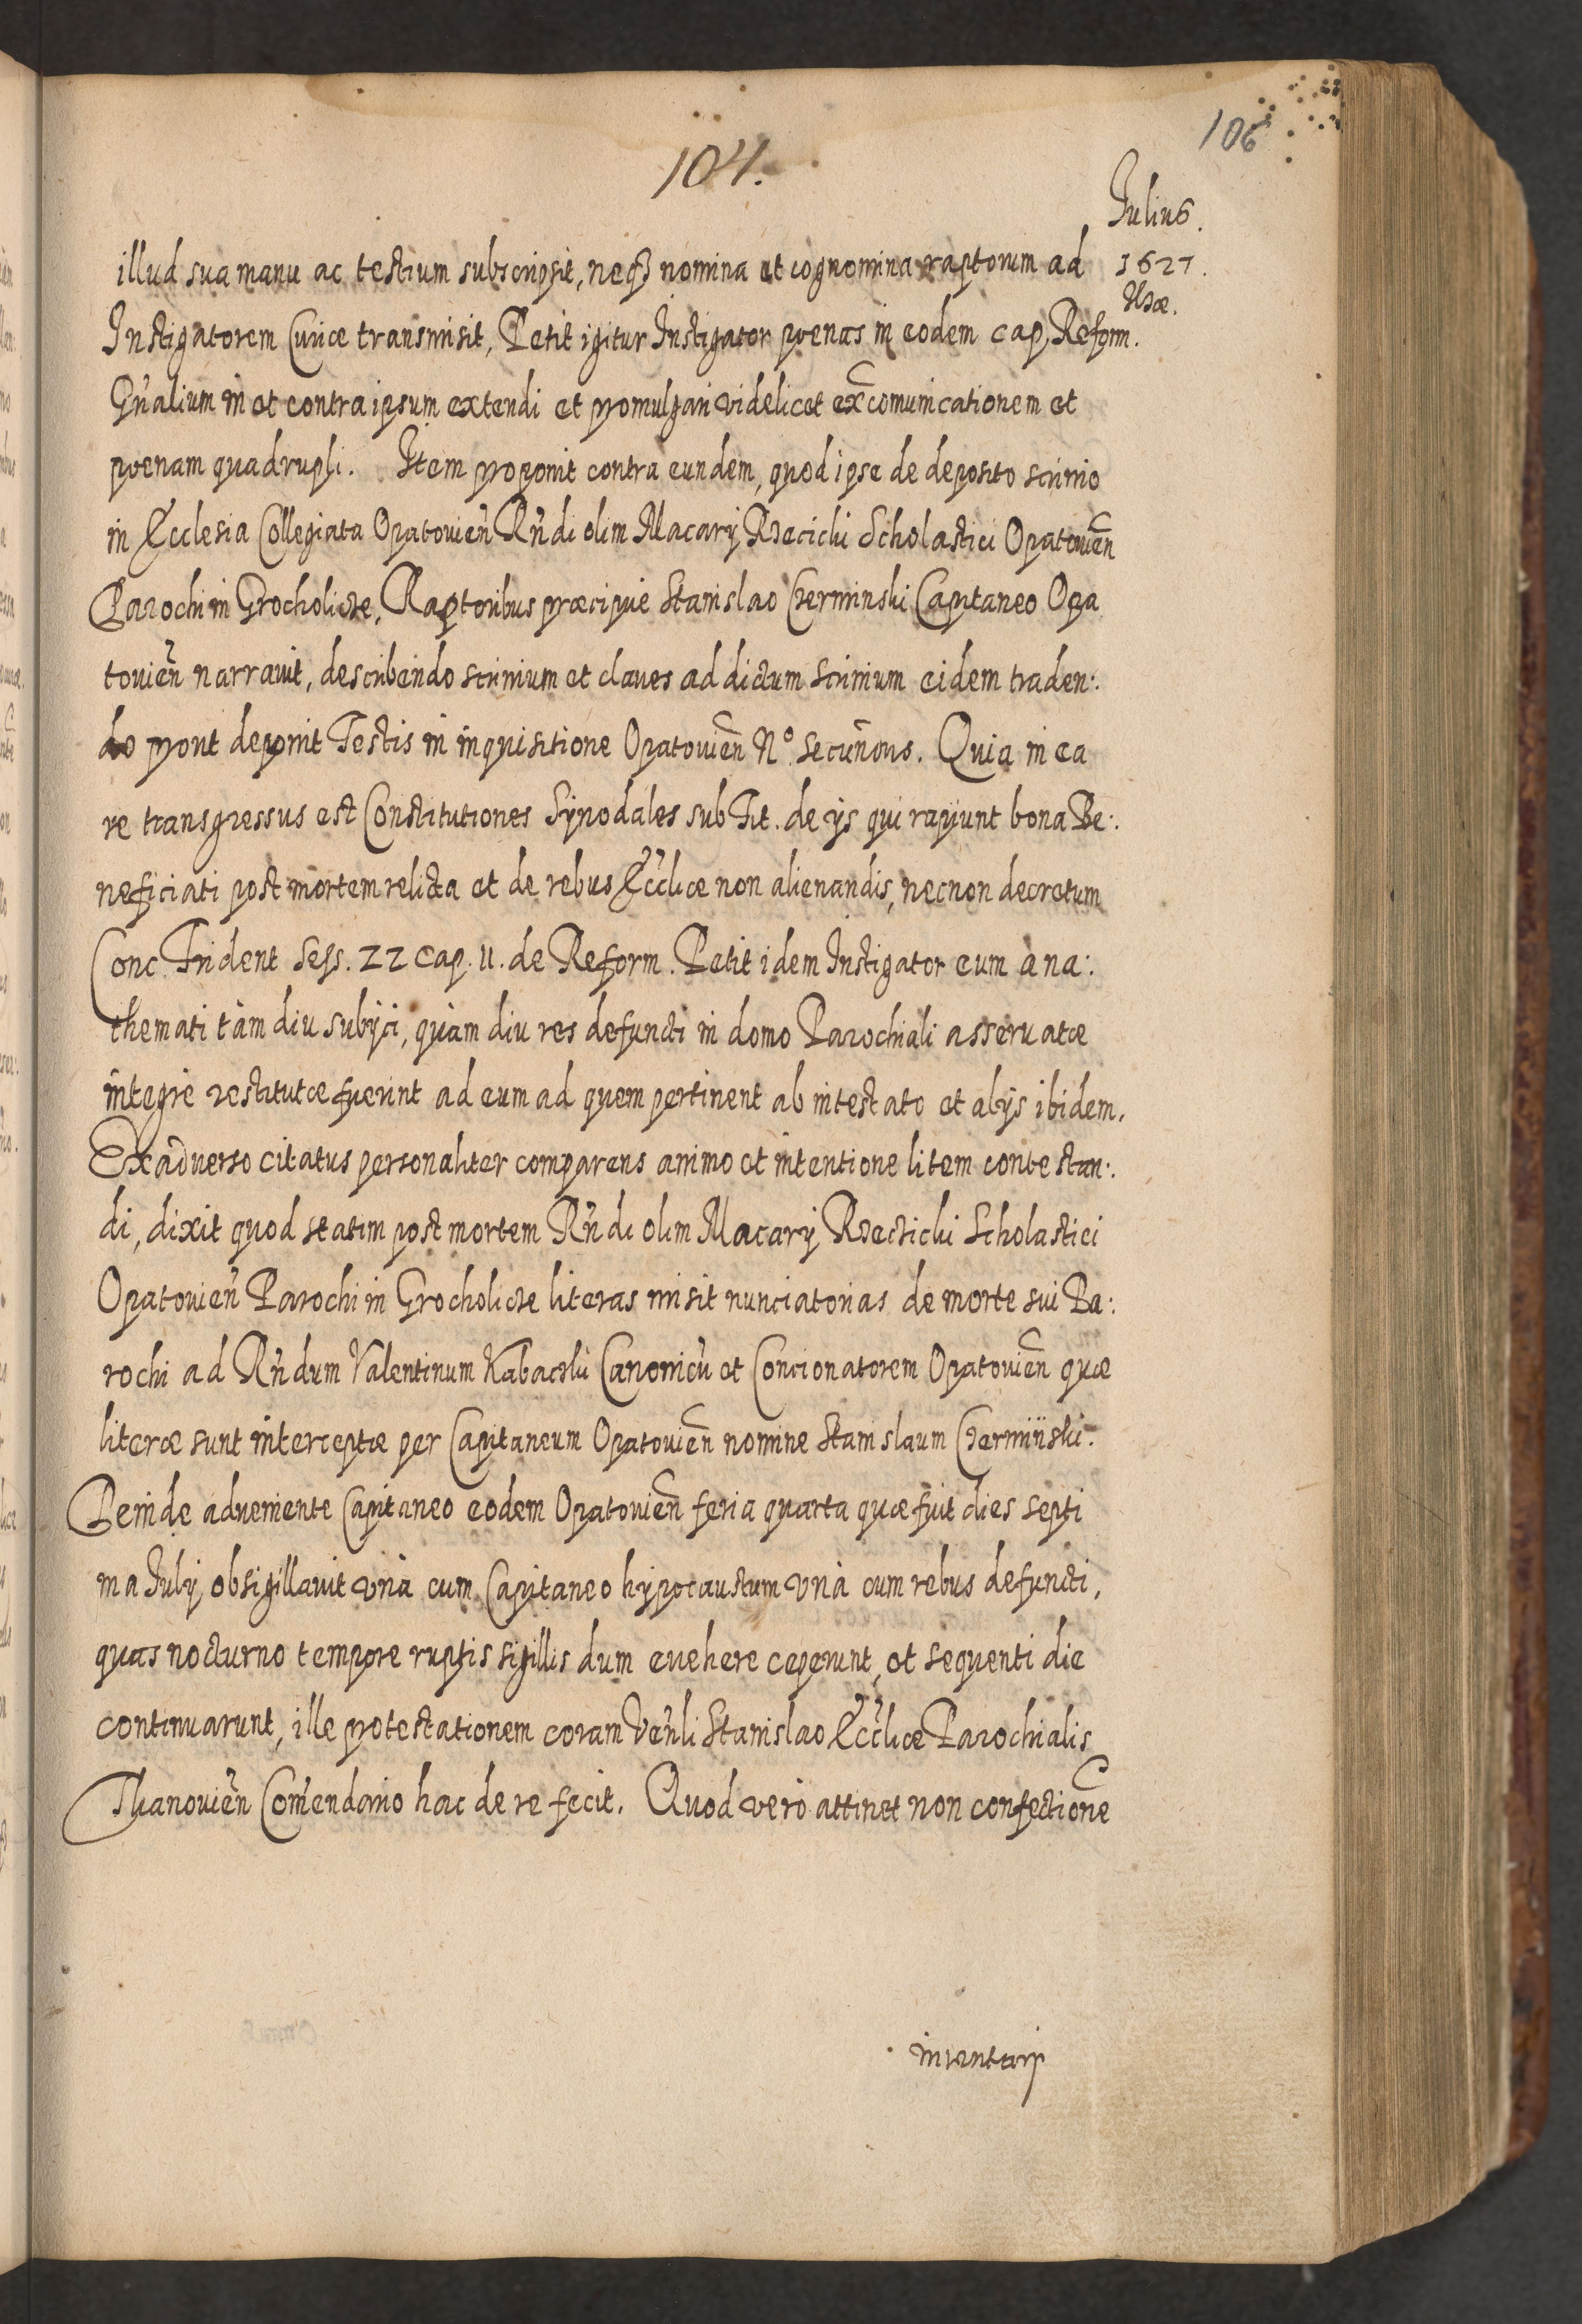 106
104.
Julius.
1627.
illud sua manu ac testium subscripsit, neq3 nomina et cognomina raptorum ad
Instigatorem Curiæ transmisit, Petit igitur Instigator pœnas in eodem cap, Reform.
Gn̄alium in et contra ipsum extendi et promulgari videlicet excōmunicationem et
pœnam quadrupli. Item proponit contra eundem, quod ipse de deposito scrinio
in Ecclesia Collegiata Opatouien̄ Rn̄di olim Macarij Rzecicki Scholastici Opatouien̄
Parochi in Grocholice, Raptoribus præcipue Stanislao Czerminski Capitaneo Opa
touien̄ narrauit, describendo scrinium et claues ad dictum scrinium eidem traden:.
do prout deponit Testis in inquisitione Opatouien̄ N.º secun̄dus. Quia in ea
re transgressus est Constitutiones Synodales sub Tit. de ijs qui rapiunt bona Be:.
neficiati post mortem relicta et de rebus Ecc̄liæ non alienandis, necnon decretum
Conc. Trident Sess. 22 Cap. 11. de Reform. Petit idem Instigator eum ana:.
themati tàm diu subijci, quàm diu res defuncti in domo Parochiali asseruatæ
integrè restitutæ fuerint ad eum ad quem pertinent ab intestato et alijs ibidem.
Ex aduerso citatus personaliter comparens animo et intentione litem contestan:.
di, dixit quod statim post mortem Rn̄di olim Macarij Rzeczicki Scholastici
Opatouien̄ Parochi in Grocholice literas misit nunciatorias de morte sui Pa:.
rochi ad Rn̄dum Valentinum Kabacki Canonicū et Concionatorem Opatouien̄ quæ
literæ sunt interceptæ per Capitaneum Opatouien̄ nomine Stanislaum Czerminski.
Deinde adueniente Capitaneo eodem Opatouien̄ feria quarta quæ fuit dies septi
ma Julij, obsigillauit vnà cum Capitaneo hypocaustum vnà cum rebus defuncti,
quas nocturno tempore ruptis sigillis dum euehere ceperunt, et sequenti die
continuarunt, ille protestationem coram Ven̄li Stanislao Ecc̄liæ Parochialis
Com̄endario hac de re fecit. Quod verò attinet non confectionē
inventarij